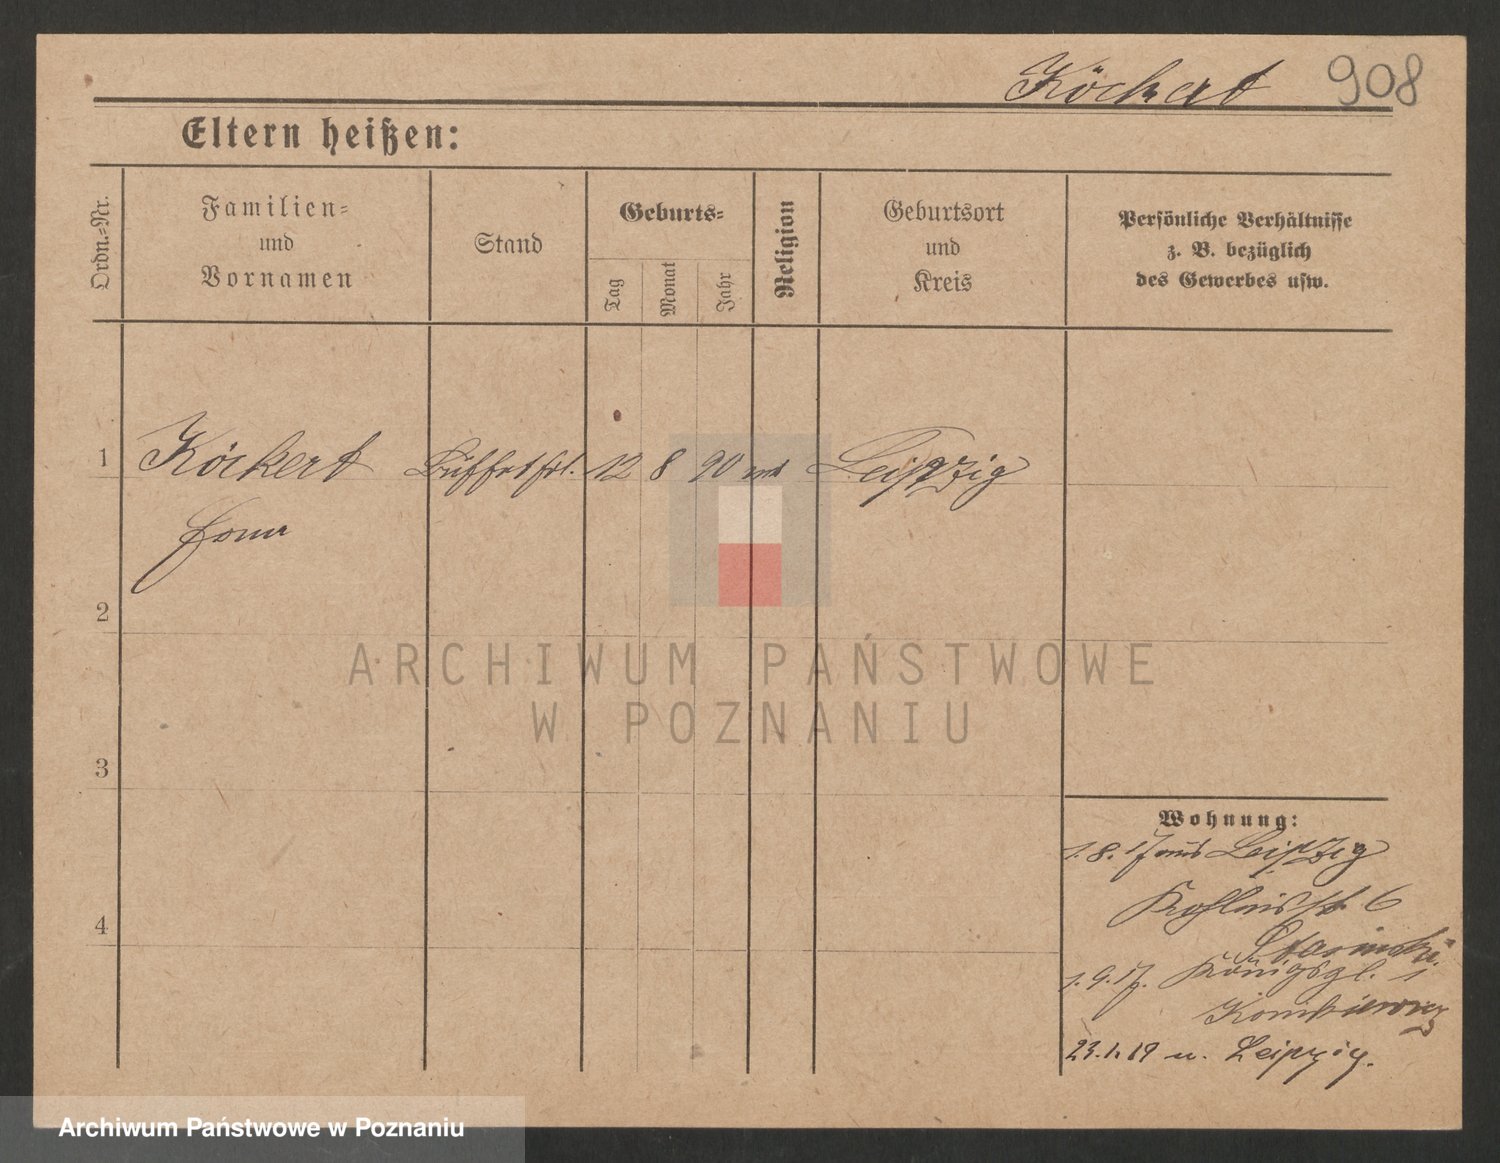 Köckert 908
Eltern heißen:
Ordn.-Nr.
Familien-
und
Vornamen
Stand
Geburts-
Tag
Monat
Jahr
Religion
Geburtsort
und
Kreis
Persönliche Verhältnisse
z. B. bezüglich
des Gewerbes usw.
1 Köckert Büffetfrl. 12 8 90 Leipzig
2
3
4
ARCHIWUM PAŃSTWOWE
W POZNANIU
Wohnung:
1.8.17 aus Leipzig
6
1.9.17. Königspl. 1
23.1.19 n. Leipzig.
Archiwum Państwowe w Poznaniu